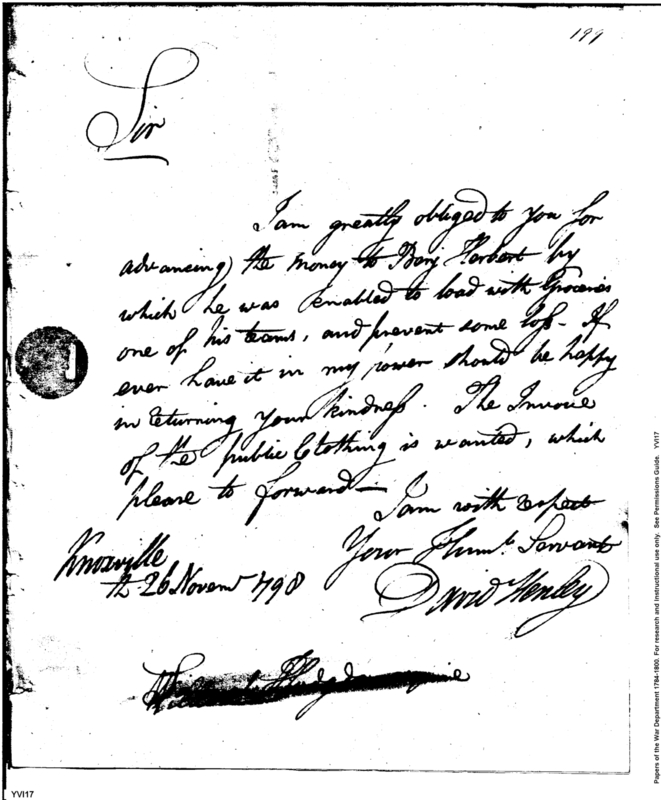 199
Sir
I am greatly obliged to you for
advancing the money to Benj Herbert by
which he was enabled to load with Groceries
one of his teams, and prevent some loss - If
ever have it in my power should be happy
in returning your kindness. The Invoice
of the public Clothing is wanted, which
please to forward —
I am with respect
Your Humb. Servant
David Henley
Knoxville
26 Novemr 1798
Papers of the War Department 1784-1800. For research and instructional use only. See Permissions Guide. YVI17
YVI17